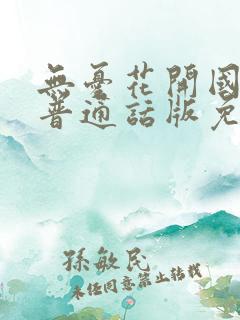 無憂花開國
普通話版免
孫敏民
未任同意禁止轉載